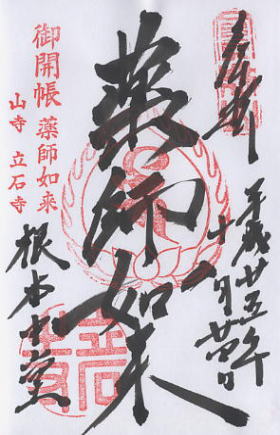 奉拝
平成廿五年
薬師如来
根本中堂
御開帳 薬師如来
山寺 立石寺